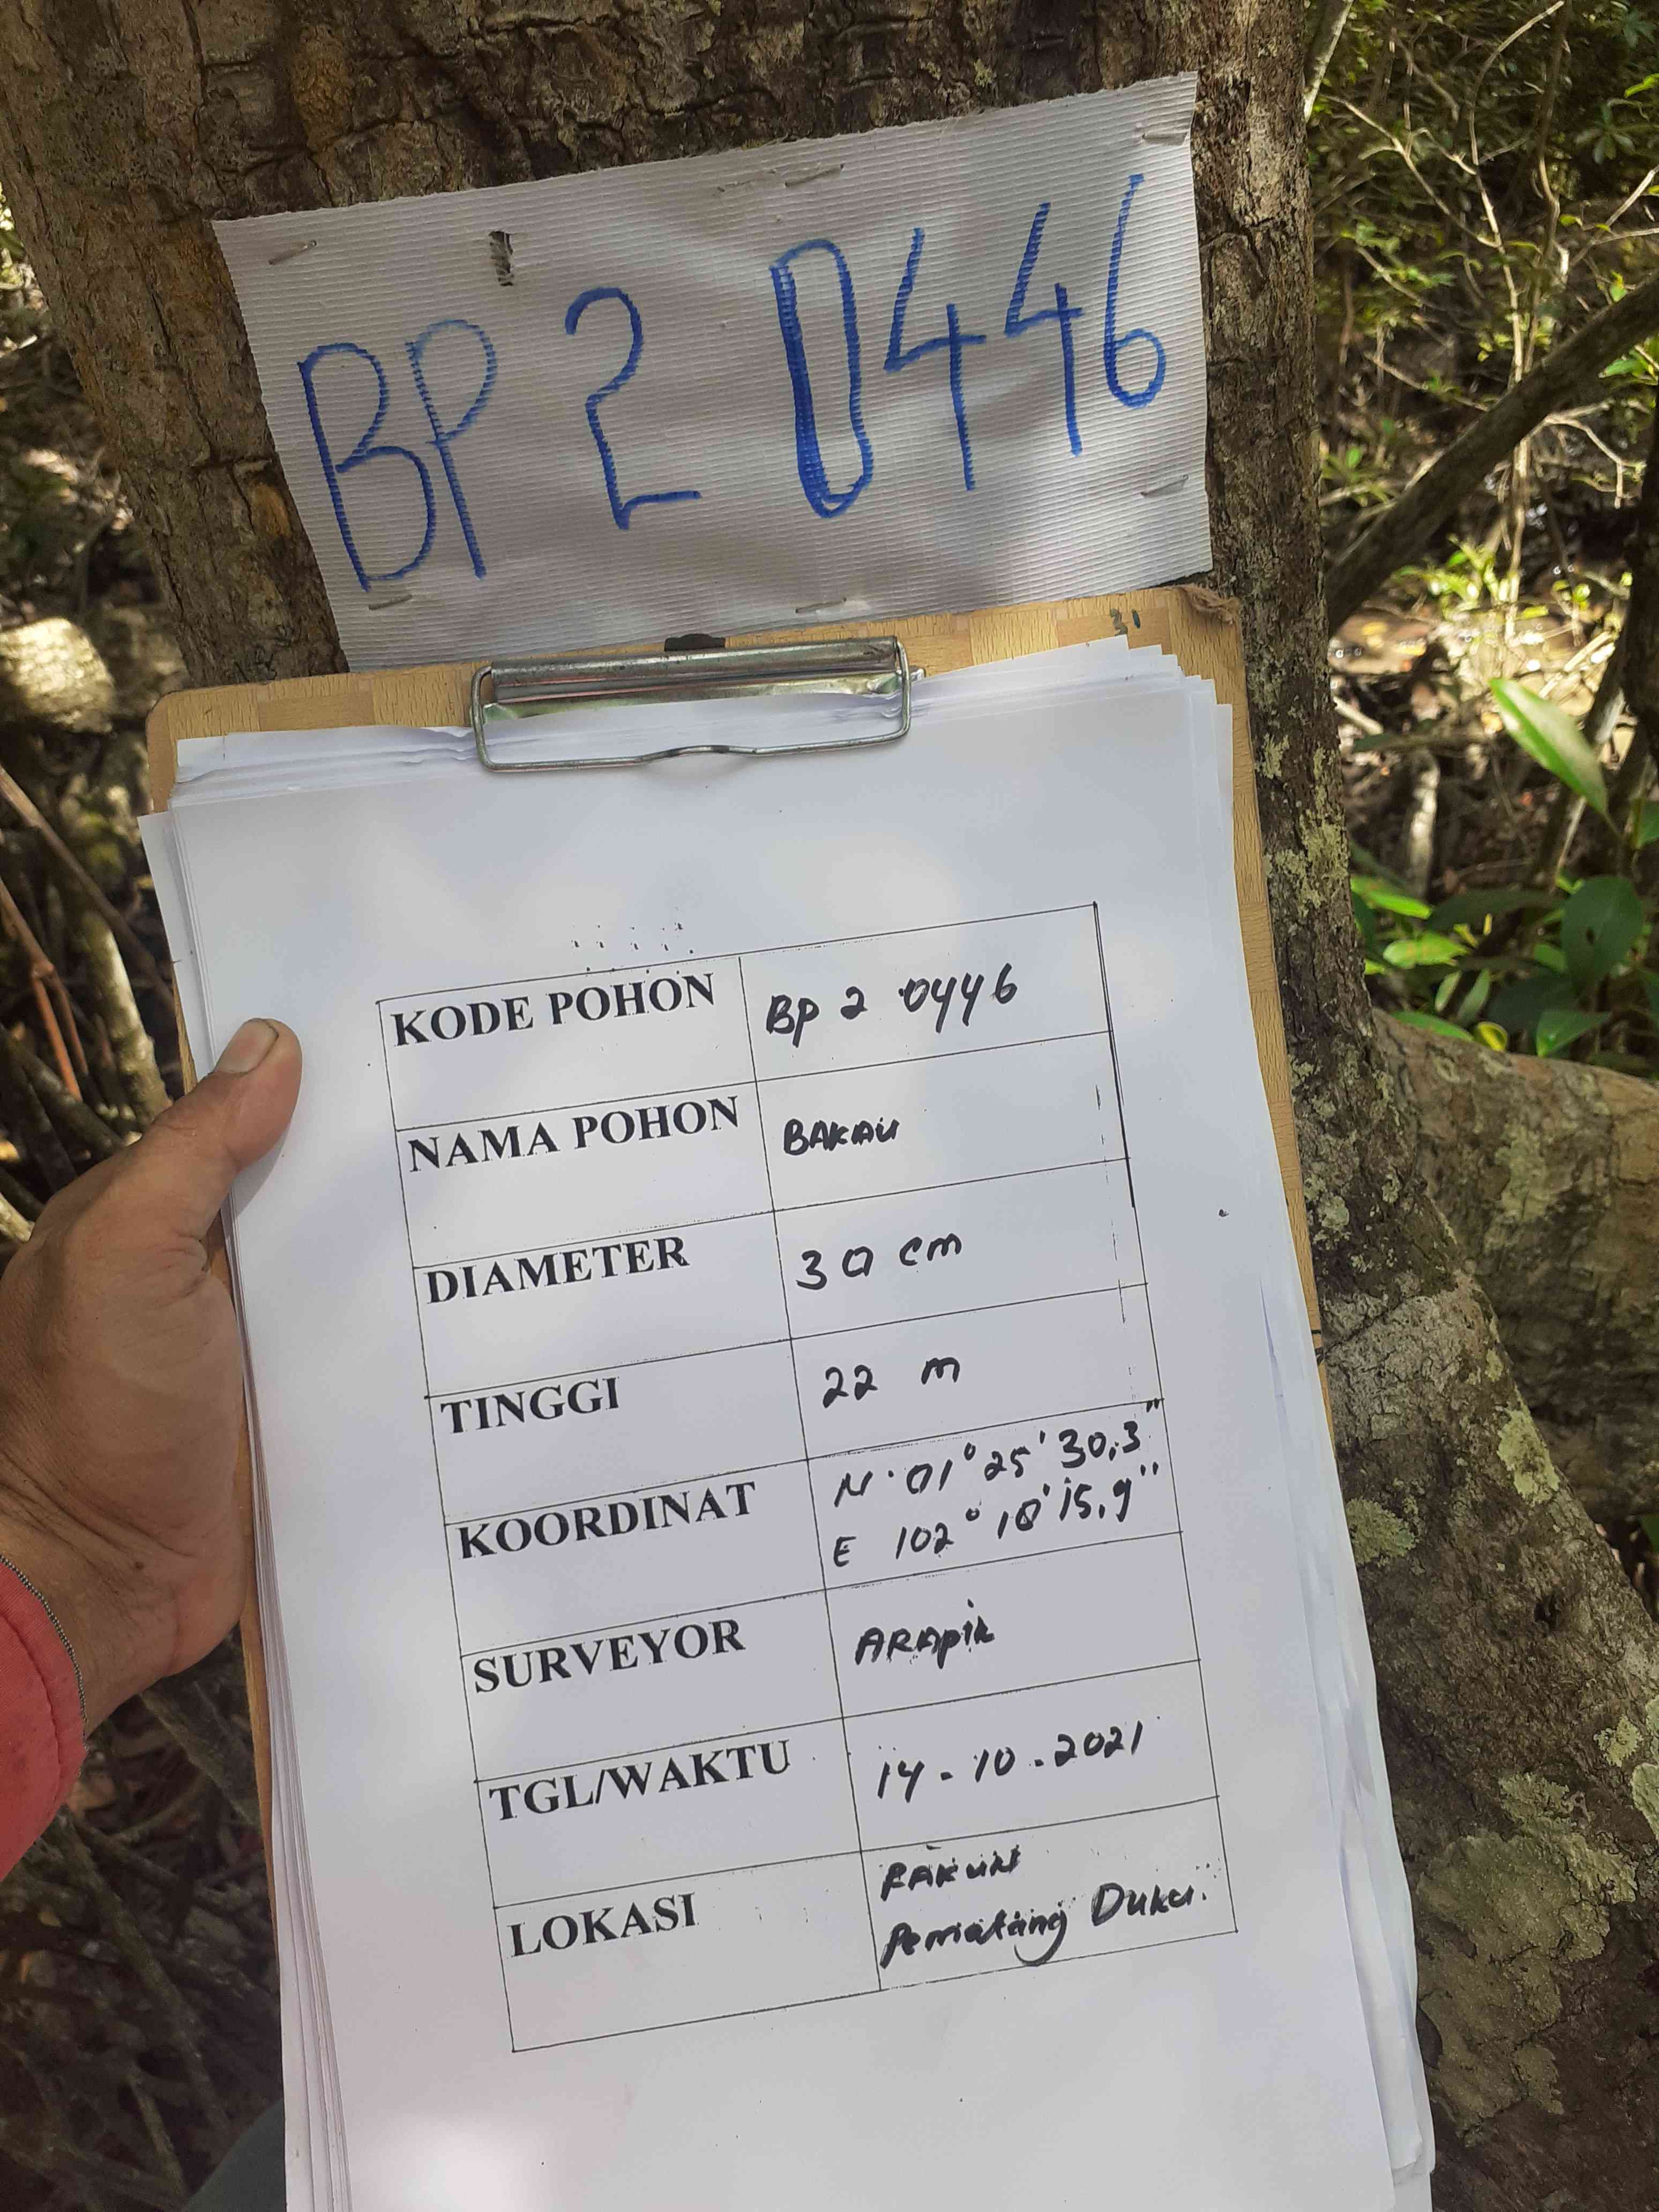 BP 2 0446
31
KODE POHON BP 2 0446
NAMA POHON BAKAU
DIAMETER 30 cm
TINGGI 22 m
KOORDINAT N. 01° 25' 30,3"
E 102° 10' 15,9"
SURVEYOR ARApik
TGL/WAKTU 14-10-2021
LOKASI
Pematang Duku.